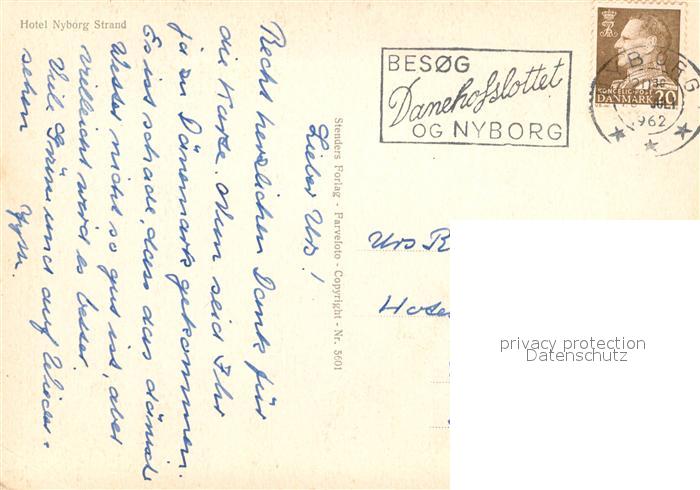 Hotel Nyborg Strand
Lieber Urs!
Recht herzlichen Dank für
die Karte. Nun seid Ihr
ja zu Dänemark gekommen.
Es ist schade, dass das dänische
Wetter nicht so gut ist, aber
vielleicht wird es besser.
Viele Grüsse und auf Wieder-
sehen
Stenders Forlag - Farvefoto - Copyright - Nr. 5601
BESØG
Danehofslottet
OG NYBORG
NYBORG
1962
KONGELIG POST
DANMARK 20
Urs R
Hotel
privacy protection
Datenschutz